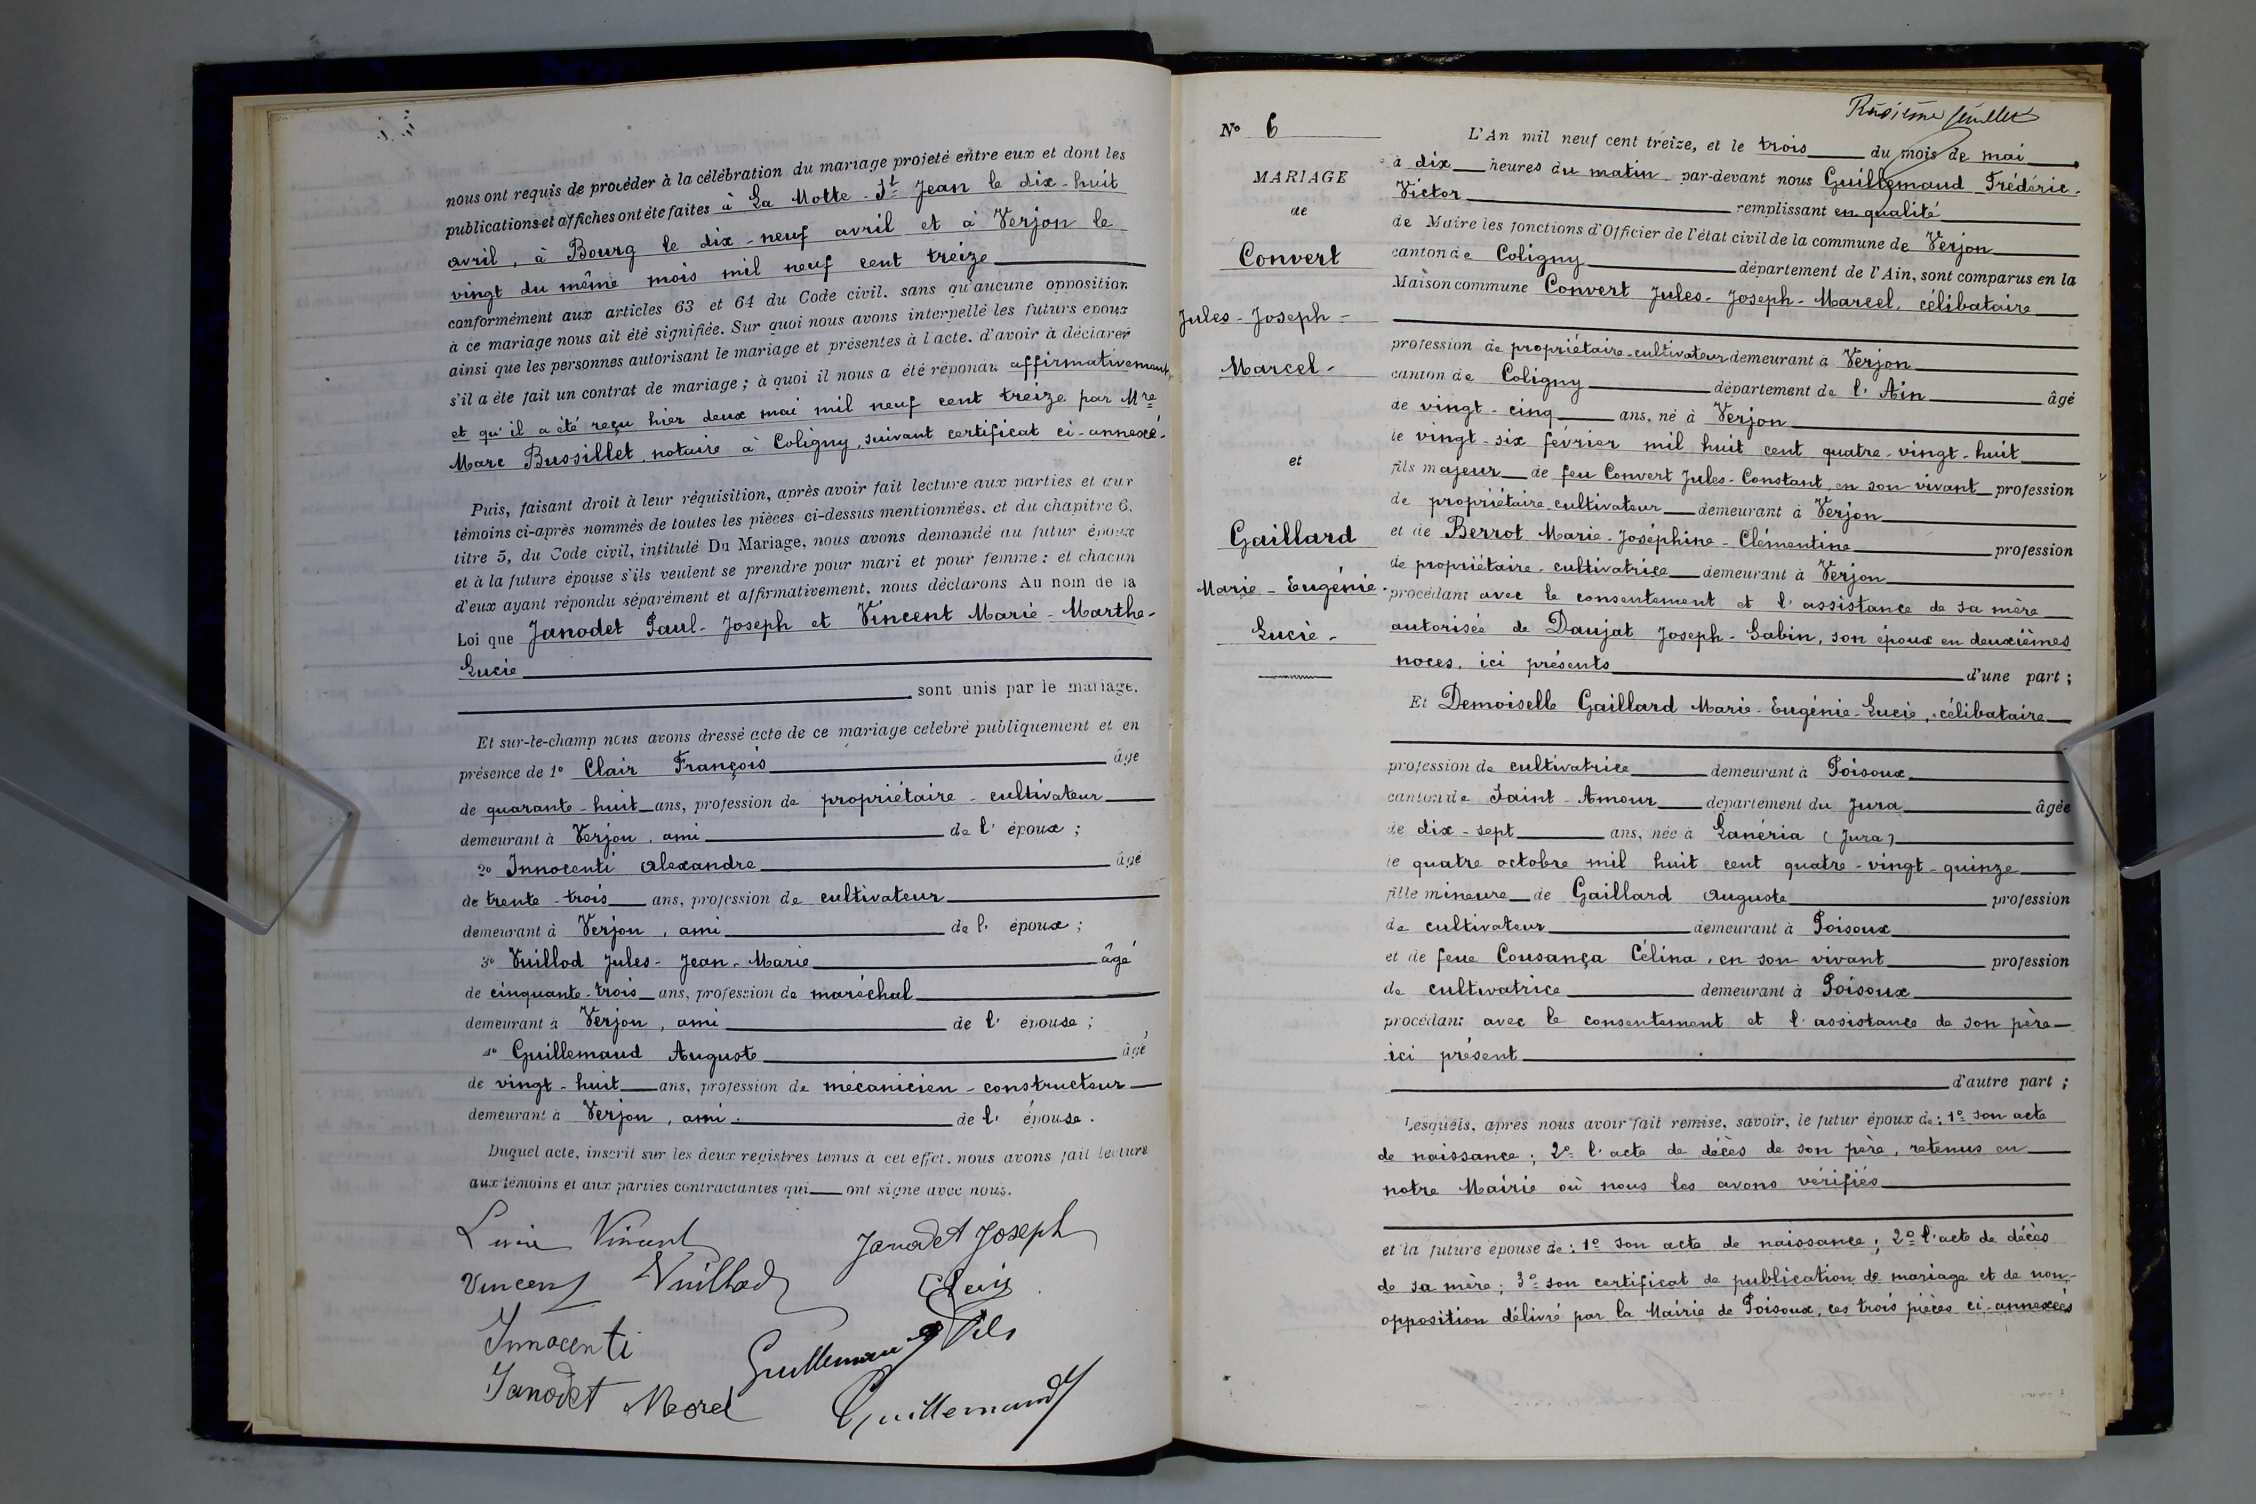 nous ont requis de procéder à la célébration du mariage projeté entre eux et dont les
publications et affiches ont été faites à La Motte-St Jean le dix-huit
avril, à Bourg le dix-neuf avril et à Verjon le
vingt du même mois mil neuf cent treize
conformément aux articles 63 et 64 du Code civil, sans qu'aucune opposition
à ce mariage nous ait été signifiée. Sur quoi nous avons interpellé les futurs époux
ainsi que les personnes autorisant le mariage et présentes à l'acte, d'avoir à déclarer
s'il a été fait un contrat de mariage; à quoi il nous a été répondu affirmativement,
et qu'il a été reçu hier deux mai mil neuf cent treize par Mre
Marc Bussillet, notaire à Coligny, suivant certificat ci-annexé.
Puis, faisant droit à leur réquisition, après avoir fait lecture aux parties et aux
témoins ci-après nommés de toutes les pièces ci-dessus mentionnées, et du chapitre 6,
titre 5, du Code civil, intitulé Du Mariage, nous avons demandé au futur époux
et à la future épouse s'ils veulent se prendre pour mari et pour femme: et chacun
d'eux ayant répondu séparément et affirmativement, nous déclarons Au nom de la
Loi que Janodet Paul-Joseph et Vincent Marie-Marthe-
Lucie
sont unis par le mariage.
Et sur-le-champ nous avons dressé acte de ce mariage célébré publiquement et en
présence de 1º Clair François âgé
de quarante-huit ans, profession de propriétaire-cultivateur
demeurant à Verjon, ami de l'époux;
2º Innocenti Alexandre âgé
de trente-trois ans, profession de cultivateur
demeurant à Verjon, ami de l'époux;
3º Vuillod Jules-Jean-Marie âgé
de cinquante-trois ans, profession de maréchal
demeurant à Verjon, ami de l'épouse;
4º Guillemaud Auguste âgé
de vingt-huit ans, profession de mécanicien-constructeur
demeurant à Verjon, ami de l'épouse.
Duquel acte, inscrit sur les deux registres tenus à cet effet, nous avons fait lecture
aux témoins et aux parties contractantes qui ont signé avec nous.
Lucie Vincent Janodet Joseph
Vincent Vuillod Clair
Innocenti Guillemaud fils
Janodet Morel Guillemaud
feuillet
Nº 6
MARIAGE
de
Convert
Jules-Joseph-
Marcel-
et
Gaillard
Marie-Eugénie-
Lucie-
L'An mil neuf cent treize, et le trois du mois de mai
à dix heures du matin par-devant nous Guillemaud Frédéric-
Victor remplissant en qualité
de Maire les fonctions d'Officier de l'état civil de la commune de Verjon
canton de Coligny département de l'Ain, sont comparus en la
Maison commune Convert Jules-Joseph-Marcel, célibataire
profession de propriétaire-cultivateur demeurant à Verjon
canton de Coligny département de l'Ain âgé
de vingt-cinq ans, né à Verjon
le vingt-six février mil huit cent quatre-vingt-huit
fils majeur de feu Convert Jules-Constant, en son vivant profession
de propriétaire-cultivateur demeurant à Verjon
et de Berrot Marie-Joséphine-Clémentine profession
de propriétaire-cultivatrice demeurant à Verjon
procédant avec le consentement et l'assistance de sa mère
autorisée de Daujat Joseph-Gabin, son époux en deuxièmes
noces, ici présents d'une part;
Et Demoiselle Gaillard Marie-Eugénie-Lucie, célibataire
profession de cultivatrice demeurant à Poisoux
canton de Saint-Amour département du Jura âgée
de dix-sept ans, née à Lanéria (Jura)
le quatre octobre mil huit cent quatre-vingt-quinze
fille mineure de Gaillard Auguste profession
de cultivateur demeurant à Poisoux
et de feue Cousança Célina, en son vivant profession
de cultivatrice demeurant à Poisoux
procédant avec le consentement et l'assistance de son père
ici présent
d'autre part;
Lesquels, après nous avoir fait remise, savoir, le futur époux de: 1º son acte
de naissance; 2º l'acte de décès de son père, retenus en
notre Mairie où nous les avons vérifiés
et la future épouse de: 1º son acte de naissance; 2º l'acte de décès
de sa mère; 3º son certificat de publication de mariage et de non-
opposition délivré par la Mairie de Poisoux, ces trois pièces ci-annexées